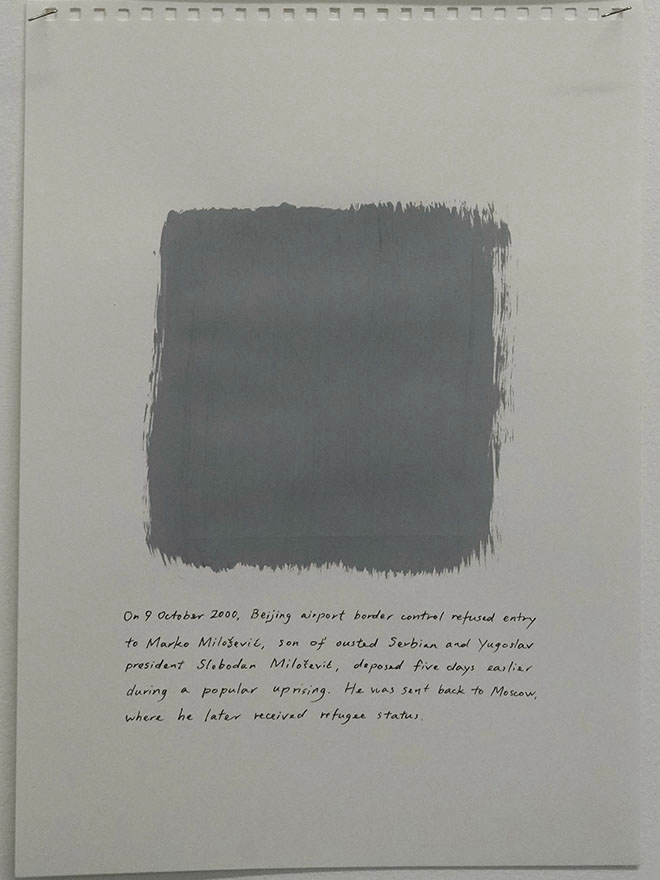 On 9 October 2000, Beijing airport border control refused entry
to Marko Milošević, son of ousted Serbian and Yugoslav
president Slobodan Milošević, deposed five days earlier
during a popular uprising. He was sent back to Moscow,
where he later received refugee status.